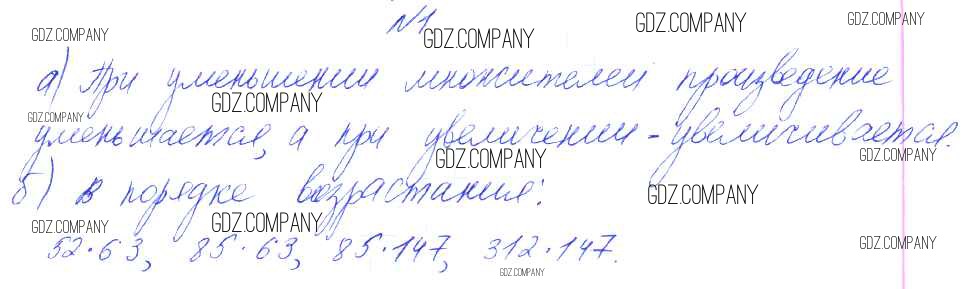 №1
а) При уменьшении множителей произведение
уменьшается, а при увеличении - увеличивается.
б) в порядке возрастания:
52·63, 85·63, 85·147, 312·147.
GDZ.COMPANY
GDZ.COMPANY
GDZ.COMPANY
GDZ.COMPANY
GDZ.COMPANY
GDZ.COMPANY
GDZ.COMPANY
GDZ.COMPANY
GDZ.COMPANY
GDZ.COMPANY
GDZ.COMPANY
GDZ.COMPANY
GDZ.COMPANY